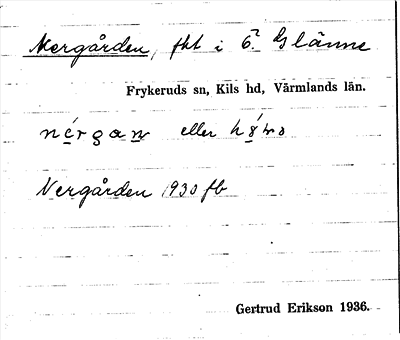 Nergården, fbt i 6. Glänne
Frykeruds sn, Kils hd, Värmlands län.
eller
Nergården 1930 fb
Gertrud Erikson 1936.